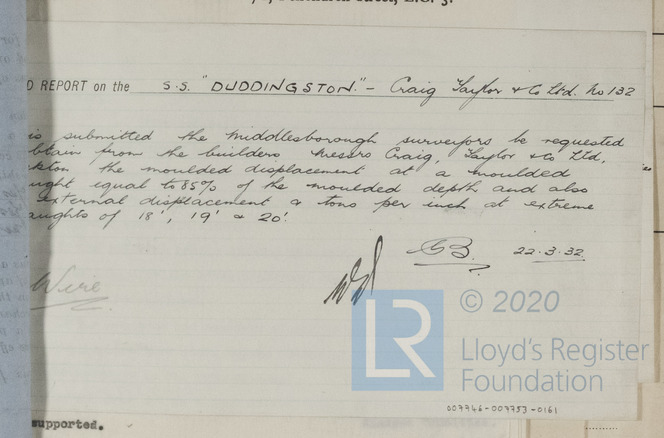 D REPORT on the S.S. "DUDDINGSTON." - Craig Taylor & Co Ltd. No 132
is submitted the Middlesborough surveyors be requested
btain from the builders Messrs Craig, Taylor & Co Ltd,
kton the moulded displacement at a moulded
ught equal to 85% of the moulded depth and also
external displacement & tons per inch at extreme
aughts of 18', 19' & 20'.
GB. 22.3.32.
Wire
LR
© 2020
Lloyd's Register
Foundation
007746-007753-0161
supported.